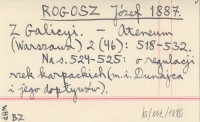 ROGOSZ Józef 1887.
Z Galicyi. – Ateneum
(Warszawa) 2 (46): 518-532.
Na s. 524-525: o regulacji
rzek karpackich (m.i. Dunajca
i jego dopływów).
BZ